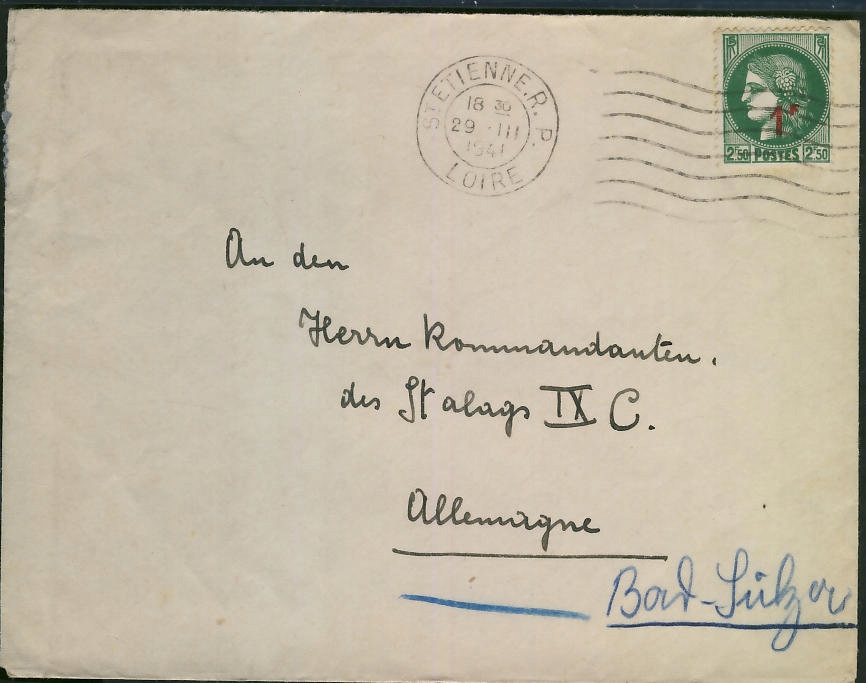 ST ETIENNE.R.P.
18 30
29 · III
1941
LOIRE
1F
2F50 POSTES 2F50
An den
Herrn Kommandanten.
des Stalags IX C.
Allemagne
Bad-Sulza